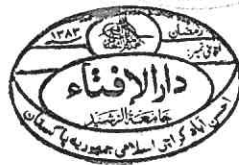 رمضان
۱۳۸۳
دارالإفتاء
جامعة الرشید
احسن آباد کراتشی اسلامی جمهوریه پاکستان